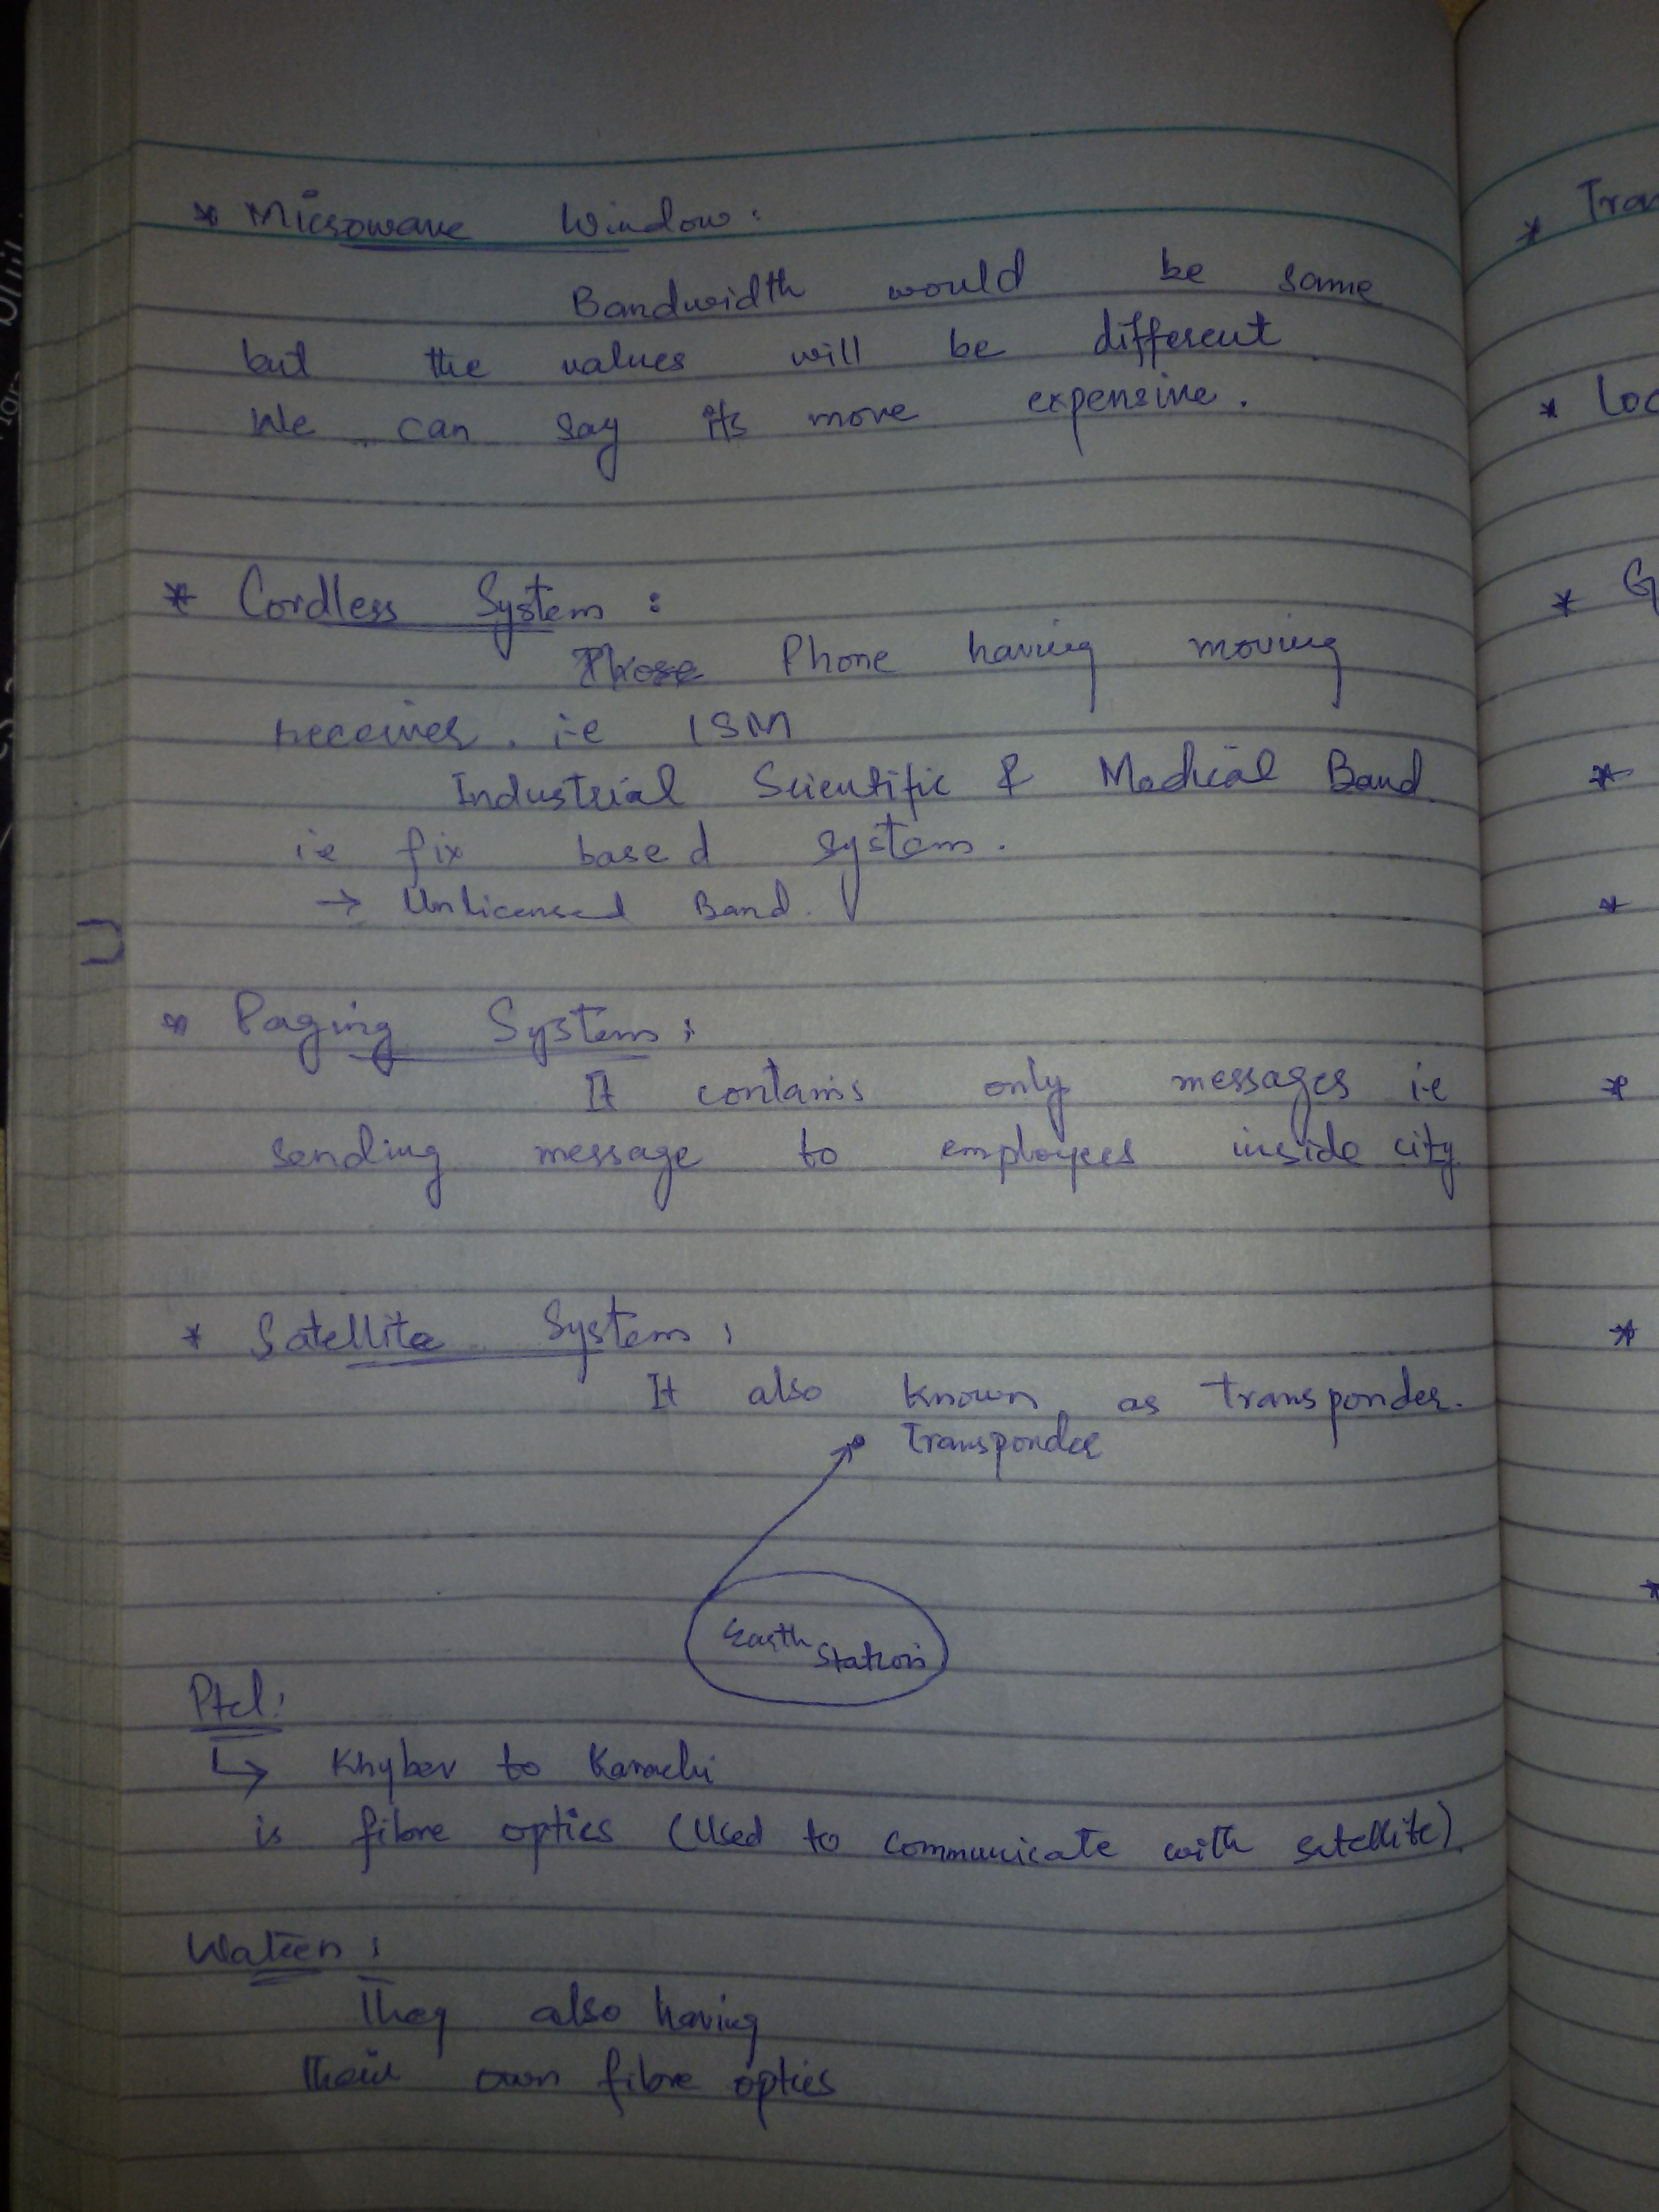 * Microwave Window:
Bandwidth would be same
but the values will be different.
We can say its more expensive.
* Cordless System:
Phone having moving
receiver. i-e ISM
Industrial Scientific & Medical Band
i.e fix based system.
→ Unlicensed Band.
* Paging System:
It contains only messages i-e
sending message to employees inside city
* Satellite System:
It also known as transponder.
Transponder
Earth
Station
Ptcl:
↳ Khyber to Karachi
is fibre optics (Used to communicate with satellite)
Wateen:
They also having
their own fibre optics
* Tra
* Loc
* G
*
*
*
*
*